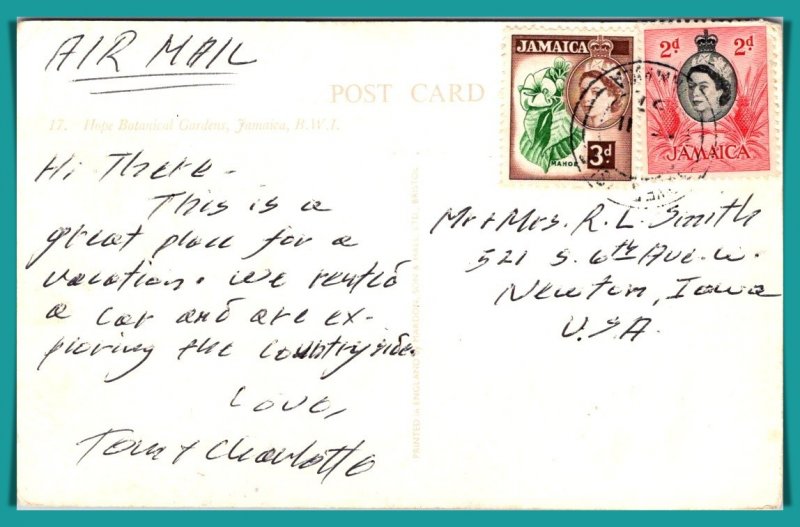 AIR MAIL
POST CARD
17. Hope Botanical Gardens, Jamaica, B.W.I.
JAMAICA
MAHOE
3d
2d 2d
JAMAICA
Hi There -
This is a
great place for a
vacation. We rented
a car and are ex-
ploring the countryside.
Love,
Tom & Charlotte
Mr & Mrs. R. L. Smith
521 S. 6th Ave. W.
Newton, Iowa
U.S.A.
PRINTED IN ENGLAND
LTD., BRISTOL